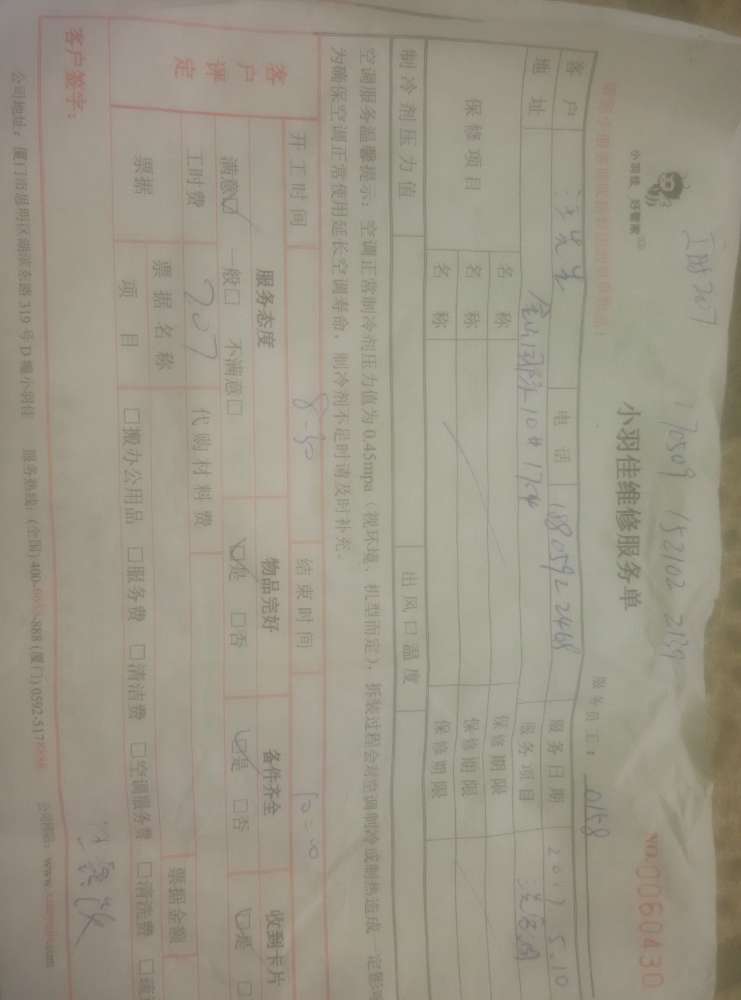 小羽佳 好管家
170509 152102 2139
小羽佳维修服务单
服务员工: 0158
No 0060430
客户 电话 18805922468 服务日期 2017 5.10
地址 金山国际10#1704 服务项目
保修项目 名称 保修期限
名称 保修期限
名称 保修期限
制冷剂压力值 出风口温度
空调服务温馨提示: 空调正常制冷剂压力值为0.45mpa(视环境、机型而定), 拆装过程会对空调制冷或制热造成一定影响
为确保空调正常使用延长空调寿命, 制冷剂不足时请及时补充。
开工时间 8:30 结束时间 10:00
客户评定 服务态度 物品完好 备件齐全 收到卡片
满意☑ 一般□ 不满意□ ☑是 □否 ☑是 □否 ☑是 □
工时费 207 代购材料费
票据 票据名称 票据金额
项目 □搬办公用品 □服务费 □清洁费 □空调服务费 □清洗费
客户签字:
公司地址: 厦门市思明区湖滨东路319号D幢小羽佳 服务热线: (全国)400- -888 (厦门)0592-517 公司网站: www.